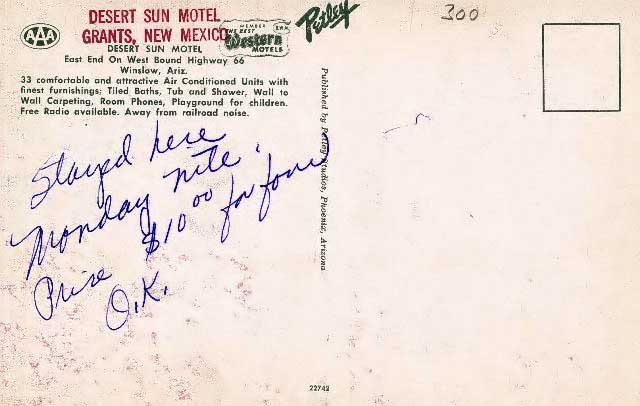 AAA
DESERT SUN MOTEL
GRANTS, NEW MEXICO
DESERT SUN MOTEL
East End On West Bound Highway 66
Winslow, Ariz.
33 comfortable and attractive Air Conditioned Units with
finest furnishings; Tiled Baths, Tub and Shower, Wall to
Wall Carpeting, Room Phones, Playground for children.
Free Radio available. Away from railroad noise.
MEMBER
THE BEST
Western
MOTELS
Petley
300
Stayed here
Monday nite.
Price $10.00 for four
O.K.
Published by Petley Studios, Phoenix, Arizona
22742